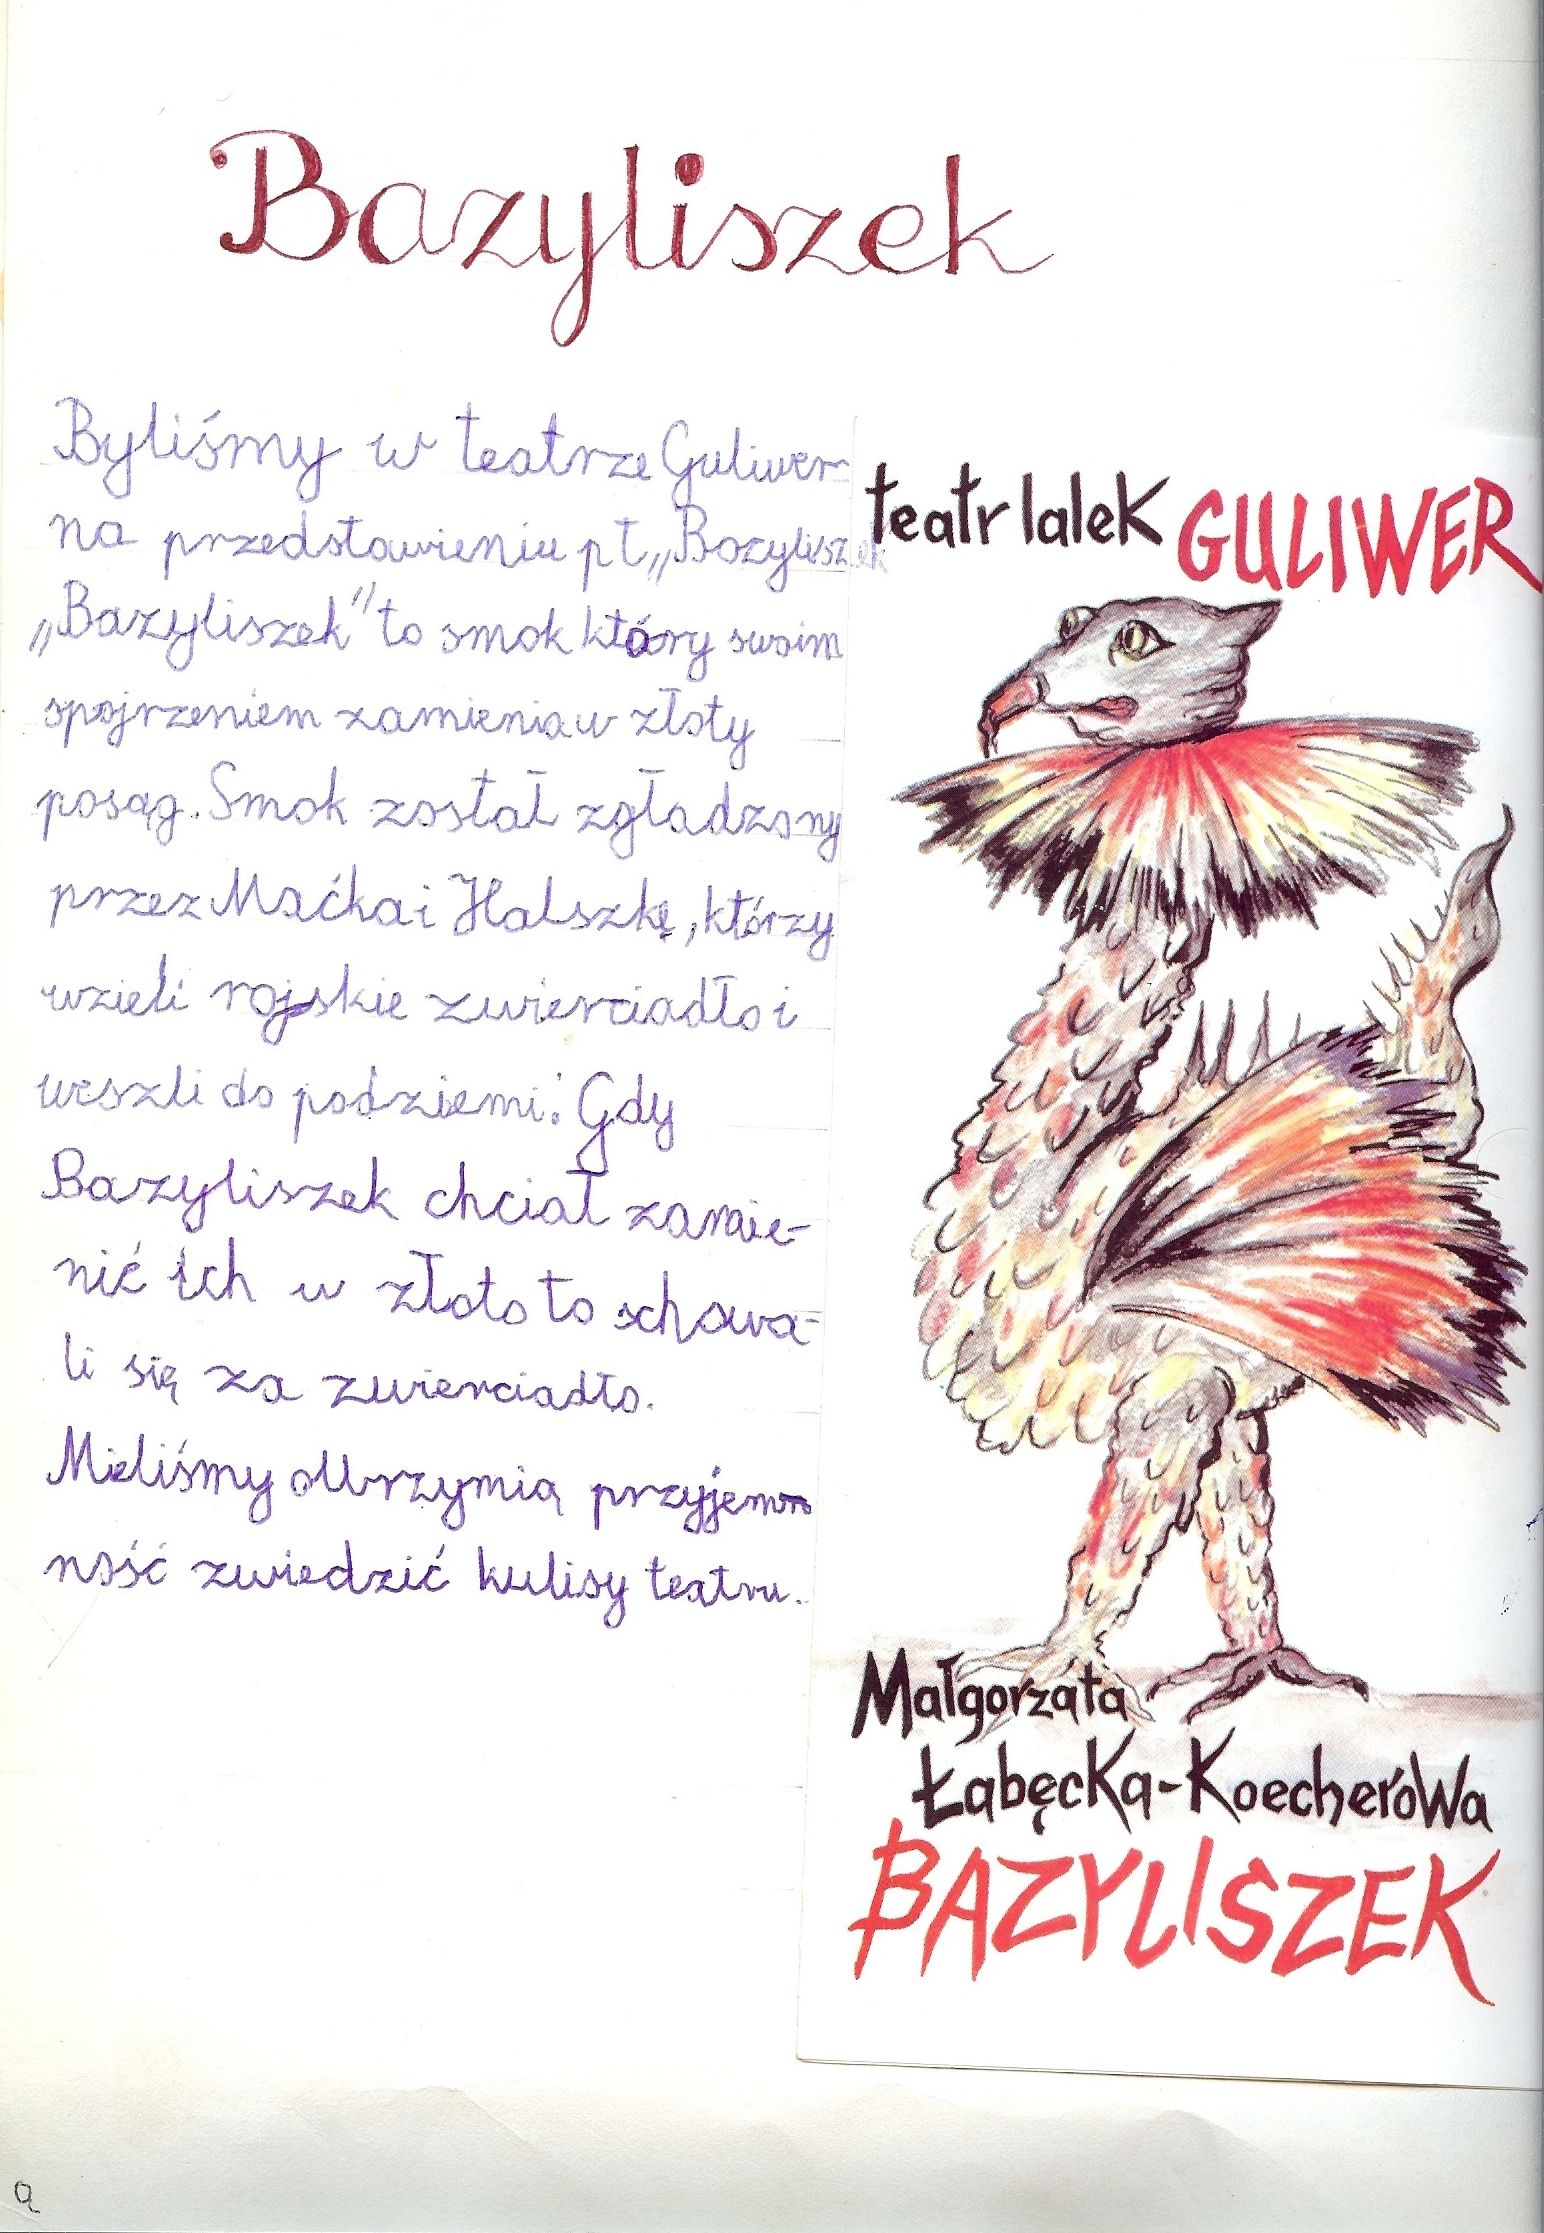 Bazyliszek
Byliśmy w teatrze Guliwer
na przedstawieniu pt „Bazyliszek
„Bazyliszek" to smok który swoim
spojrzeniem zamienia w złoty
posąg. Smok został zgładzony
przez Maćka i Halszkę, którzy
wzieli rajskie zwierciadło i
weszli do podziemi. Gdy
Bazyliszek chciał zamie-
nić ich w złoto to schowa-
li się za zwierciadło.
Mieliśmy olbrzymią przyjem
ność zwiedzić kulisy teatru.
teatr lalek GULIWER
Małgorzata
Łabęcka-Koecherówa
BAZYLISZEK